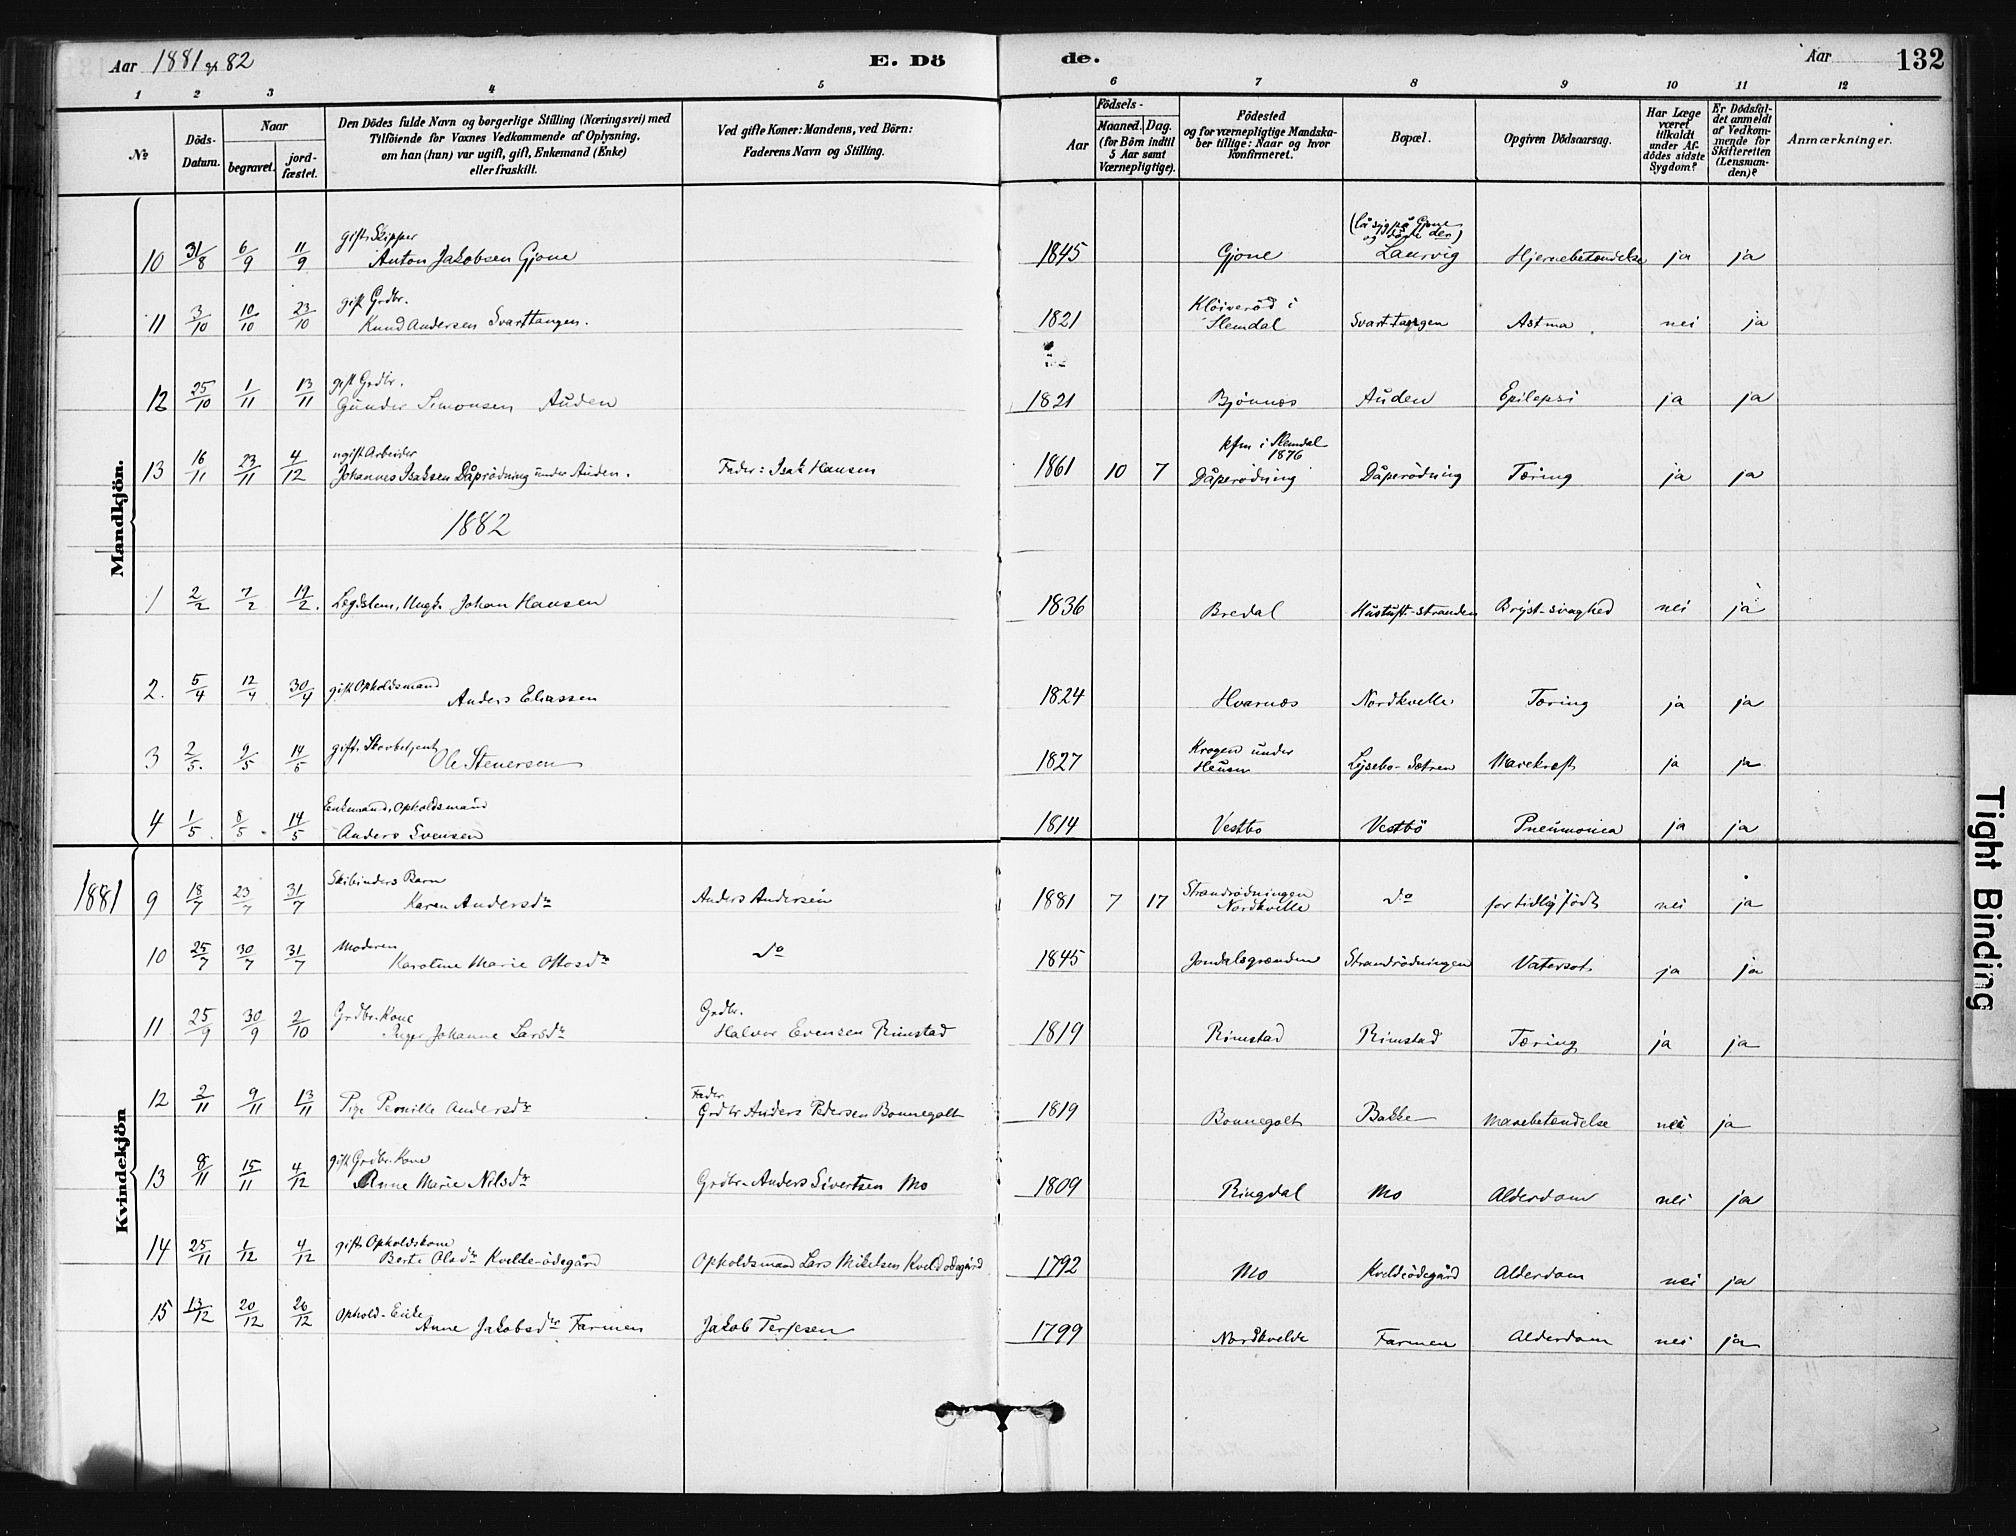 Aar 1881 og 82
E. Dö
de.
Aar
132
1 2 3 4 5 6 7 8 9 10 11 12
No
Döds-Datum.
Naar
begravet.
jordfæstet.
Den Dödes fulde Navn og borgerlige Stilling (Næringsvei) med
Tilföiende for Voxnes Vedkommende af Oplysning,
om han (hun) var ugift, gift, Enkemand (Enke)
eller fraskilt.
Ved gifte Koner: Mandens, ved Börn:
Faderens Navn og Stilling.
Födsels-
Aar
Maaned. Dag.
(for Börn indtil
5 Aar samt
Værnepligtige).
Födested
og for værnepligtige Mandskaber tillige: Naar og hvor
konfirmeret.
Bopæl.
Opgiven Dödsaarsag.
Har Læge været tilkaldt under Afdödes sidste Sygdom?
Er Dödsfaldet anmeldt af Vedkommende for Skifteretten (Lensmanden)?
Anmærkninger.
Mandkjön.
10 31/8 6/9 11/9 gift Skipper Anton Jakobsen Gjone 1845 Gjone (lå syg på Gjone og döde der) Laurvig Hjernebetændelse ja ja
11 3/10 10/10 23/10 gift Grdbr. Knud Andersen Svarttangen. 1821 Klöiveröd i Slemdal Svarttangen Astma. nei ja
12 25/10 1/11 13/11 gift Grdbr. Gunder Simonsen Auden 1821 Bjönnes Auden Epilepsi ja ja
13 16/11 23/11 4/12 ugift Arbeider Johannes Isaksen Dåprödning under Auden. Fader: Isak Hansen 1861 10 7 kfm i Slemdal 1876 Dåperödning Dåperödning Tæring ja ja
1882
1 2/2 7/2 19/2. Legdslem, Ungk. Johan Hansen 1836 Bredal -stranden Bryst-svaghed nei ja
2. 5/4 12/4 30/4 gift Opholdsmand Anders Eliassen 1824 Hvarnes Nordkvelle Tæring ja ja
3 2/5. 9/5 14/5 gift Skovbetjent Ole Stenersen 1827 Krogen under Heum Lysebo-Sætren Mavekræft ja ja
4 1/5. 8/5. 14/5 Enkemand, Opholdsmand Anders Svensen 1814 Vestbo Vestbö Pneumonica ja ja
Kvindekjön
1881 9 18/7 23/7 31/7 Skibinders Barn Karen Andersdtr Anders Andersen 1881 7 17 Strandrödningen Nordkvelle do for tidlig födt nei ja
10 25/7 30/7 31/7 Moderen Karoline Marie Ottosdtr do 1845 Jondalsgrænden Strandrödningen Vatersot ja ja
11 25/9 30/9 2/10 Grdbr. Kone Inger Johanne Larsdtr Grdbr. Halvor Evensen Rimstad 1819 Rimstad Rimstad Tæring ja ja
12 2/11 9/11 13/11 Pige Pernille Andersdtr Fader Grdbr Anders Pedersen Bonnegolt 1819 Bonnegolt Bakke Mavebetændelse nei ja
13 8/11 15/11 4/12 gift Grdbr. Kone Anne Marie Nilsdtr Grdbr. Anders Sivertsen Mo 1809 Ringdal Mo Alderdom nei ja
14 25/11 1/12 4/12 gift Opholdskone Berte Olsdtr Kvelde-ödegård Opholdsmand Lars Mikelsen Kveldödegård 1792 Mo Kveldeödegård Alderdom nei ja
15 13/12 20/12 26/12 Ophold-Enke Anne Jakobsdtr Farmen Jakob Terjesen 1799 Nordkvelde Farmen Alderdom nei ja
Tight Binding